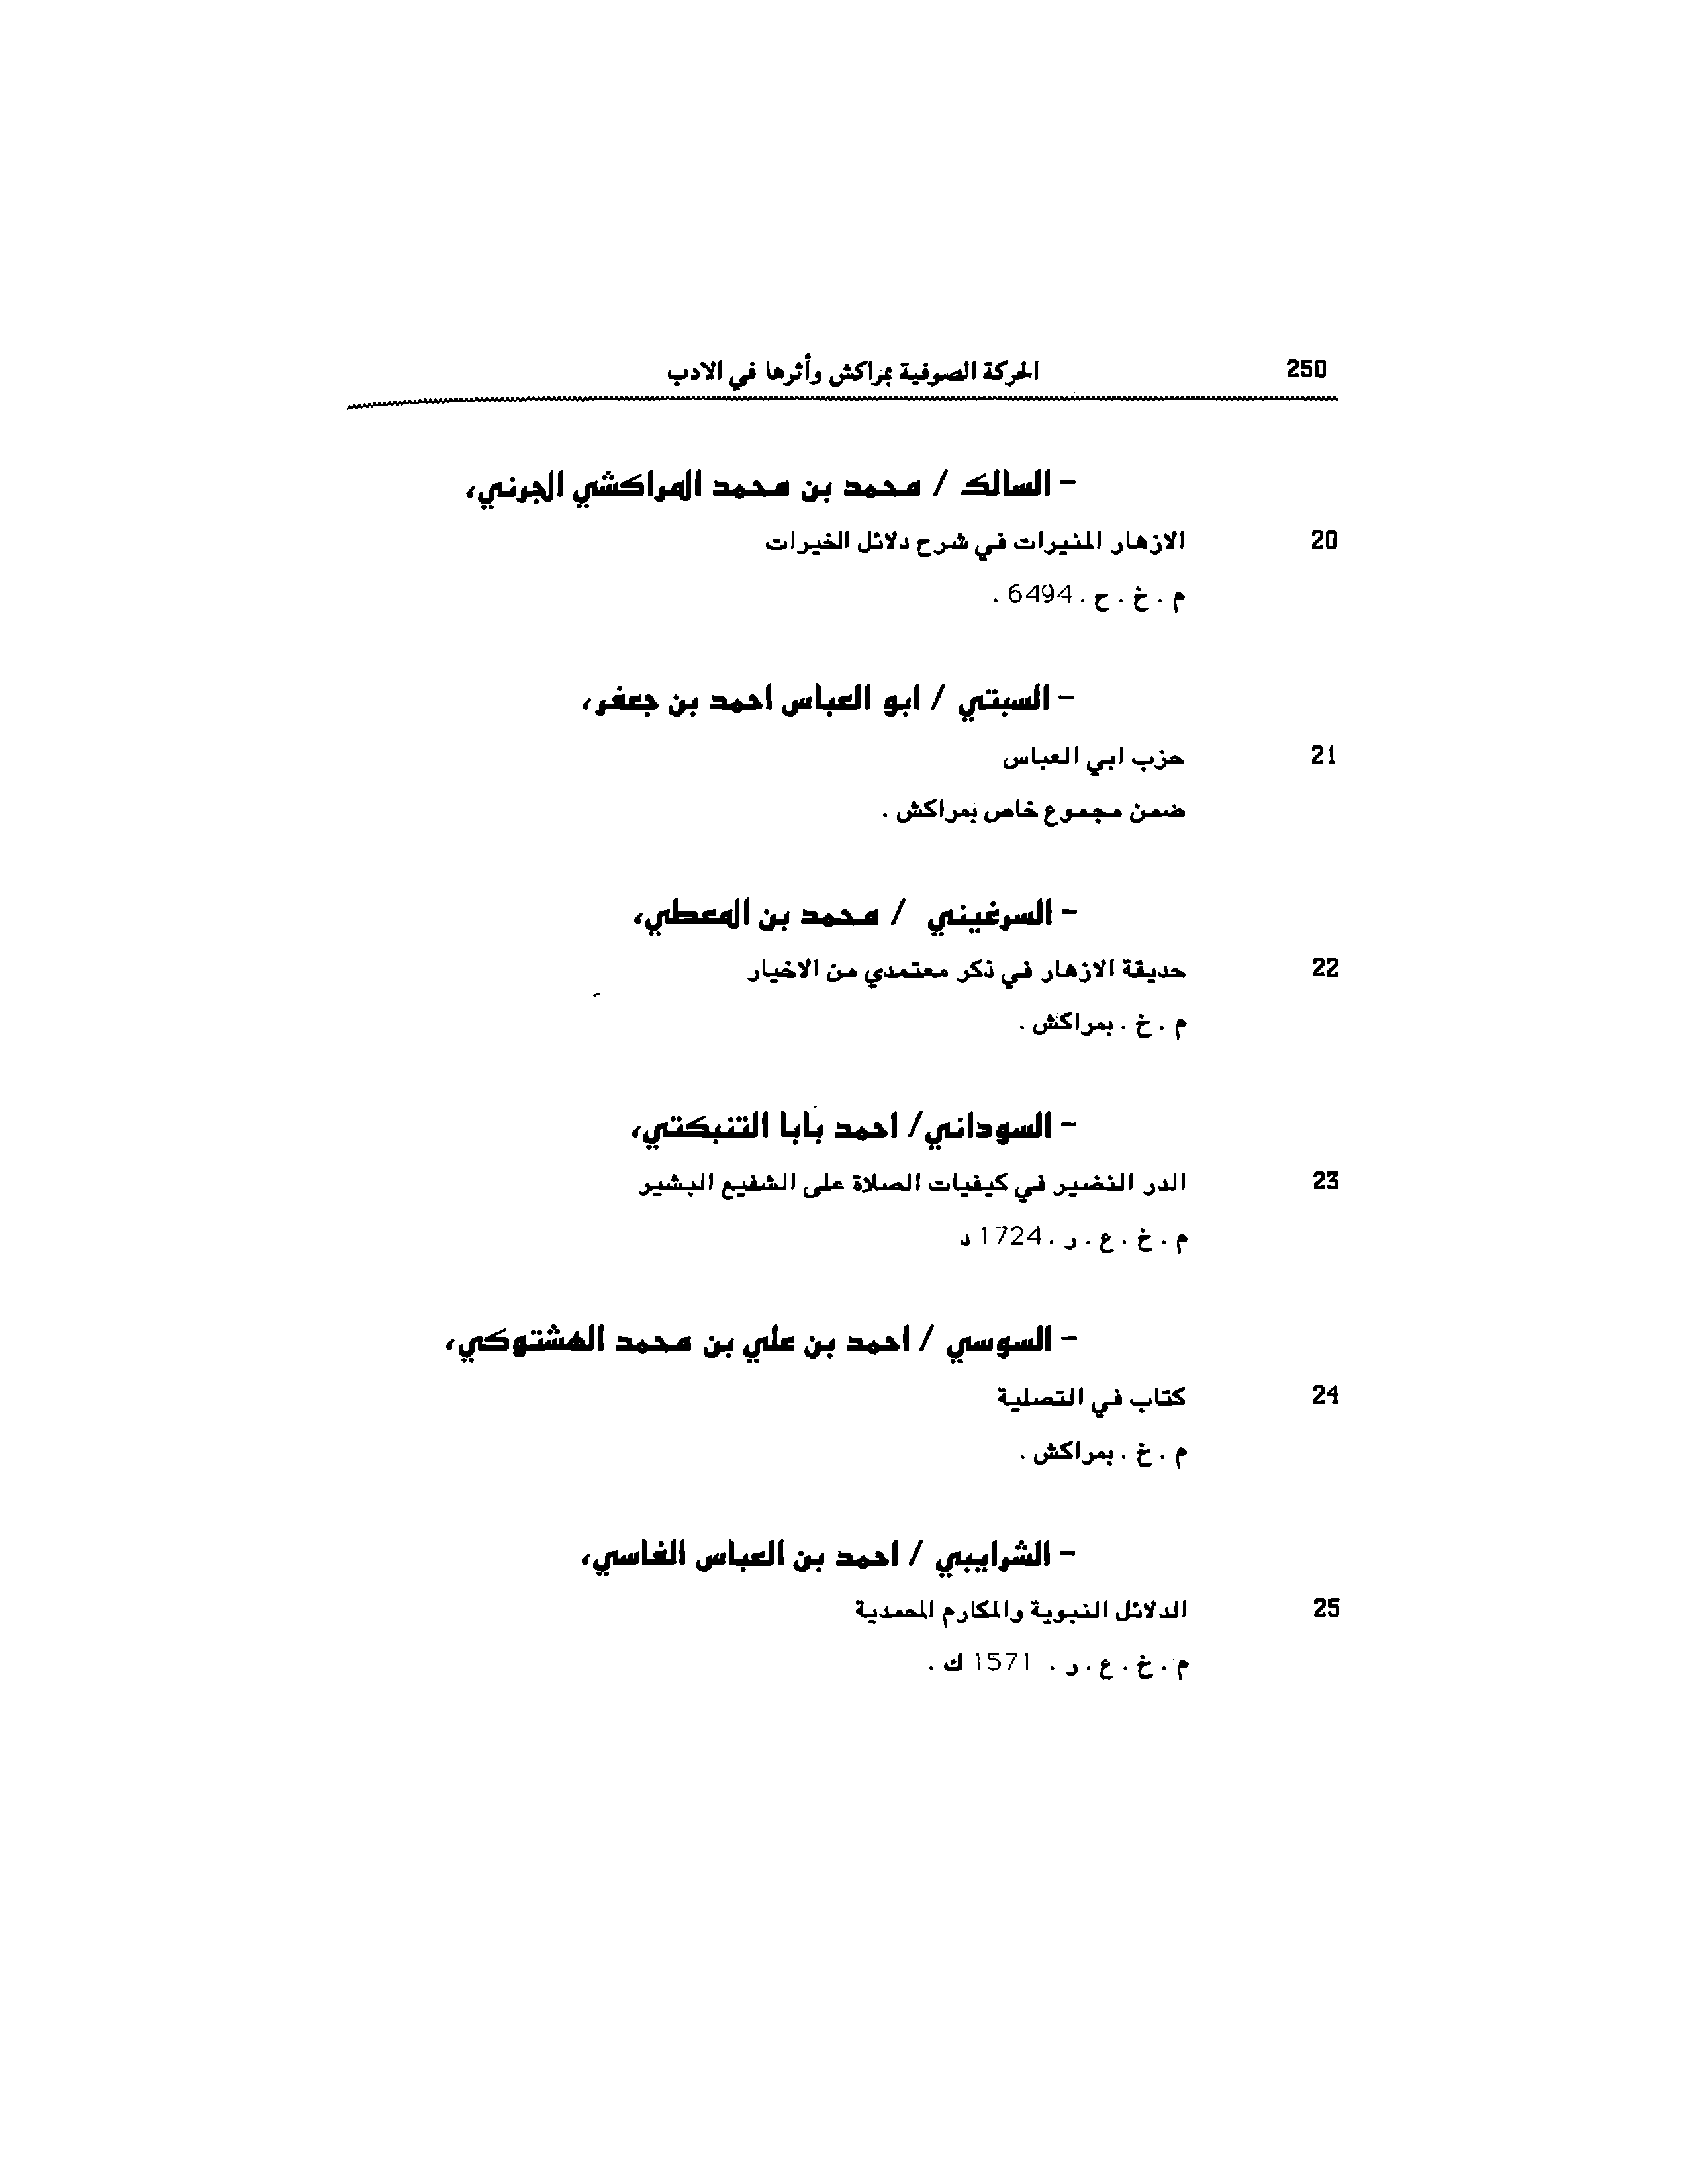 250 الحركة الصوفية بمراكش وأثرها في الادب
- السالك / محمد بن محمد المراكشي الجرني،
20 الازهار المنيرات في شرح دلائل الخيرات
م . خ . ح . 6494 .
- السبتي / ابو العباس احمد بن جعفر،
21 حزب ابي العباس
ضمن مجموع خاص بمراكش .
- السرغيني / محمد بن المعطي،
22 حديقة الازهار في ذكر معتمدي من الاخيار
م . خ . بمراكش .
- السوداني/ احمد بابا التنبكتي،
23 الدر النضير في كيفيات الصلاة على الشفيع البشير
م . خ . ع . ر . 1724 د
- السوسي / احمد بن علي بن محمد الهشتوكي،
24 كتاب في التصلية
م . خ . بمراكش .
- الشرايبي / احمد بن العباس الفاسي،
25 الدلائل النبوية والمكارم المحمدية
م . خ . ع . ر . 1571 ك .